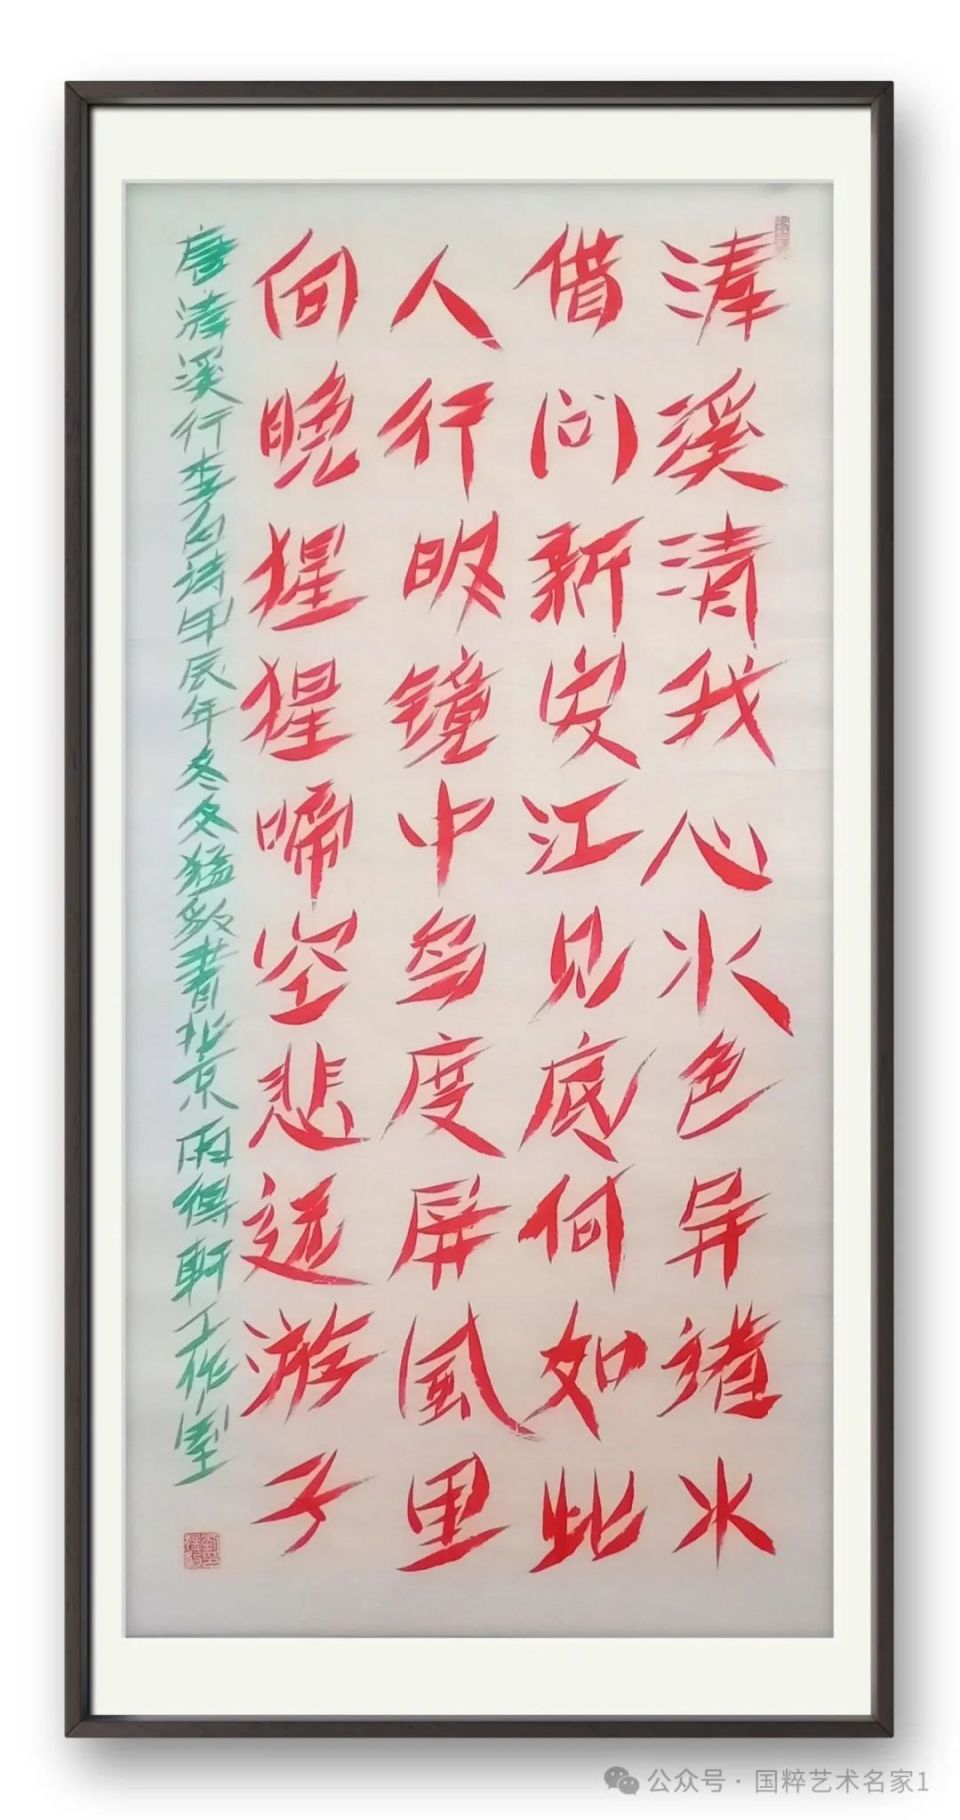 清溪清我心水色异诸水
借问新安江见底何如此
人行明镜中鸟度屏风里
向晚猩猩啼空悲远游子
唐清溪行李白诗甲辰年冬文猛敬書北京雨得軒工作室
公众号·国粹艺术名家1